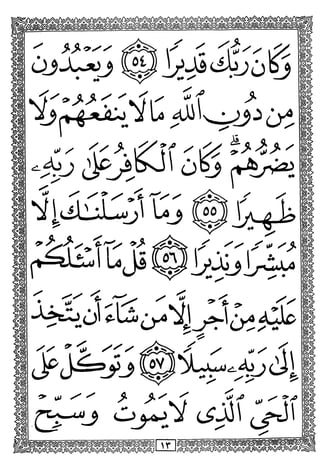 وَكَانَ رَبُّكَ قَدِيرًا ٥٤ وَيَعْبُدُونَ
مِن دُونِ ٱللَّهِ مَا لَا يَنفَعُهُمْ وَلَا
يَضُرُّهُمْ ۗ وَكَانَ ٱلْكَافِرُ عَلَىٰ رَبِّهِۦ
ظَهِيرًا ٥٥ وَمَآ أَرْسَلْنَٰكَ إِلَّا
مُبَشِّرًا وَنَذِيرًا ٥٦ قُلْ مَآ أَسْـَٔلُكُمْ
عَلَيْهِ مِنْ أَجْرٍ إِلَّا مَن شَآءَ أَن يَتَّخِذَ
إِلَىٰ رَبِّهِۦ سَبِيلًا ٥٧ وَتَوَكَّلْ عَلَى
ٱلْحَىِّ ٱلَّذِى لَا يَمُوتُ وَسَبِّحْ
١٣